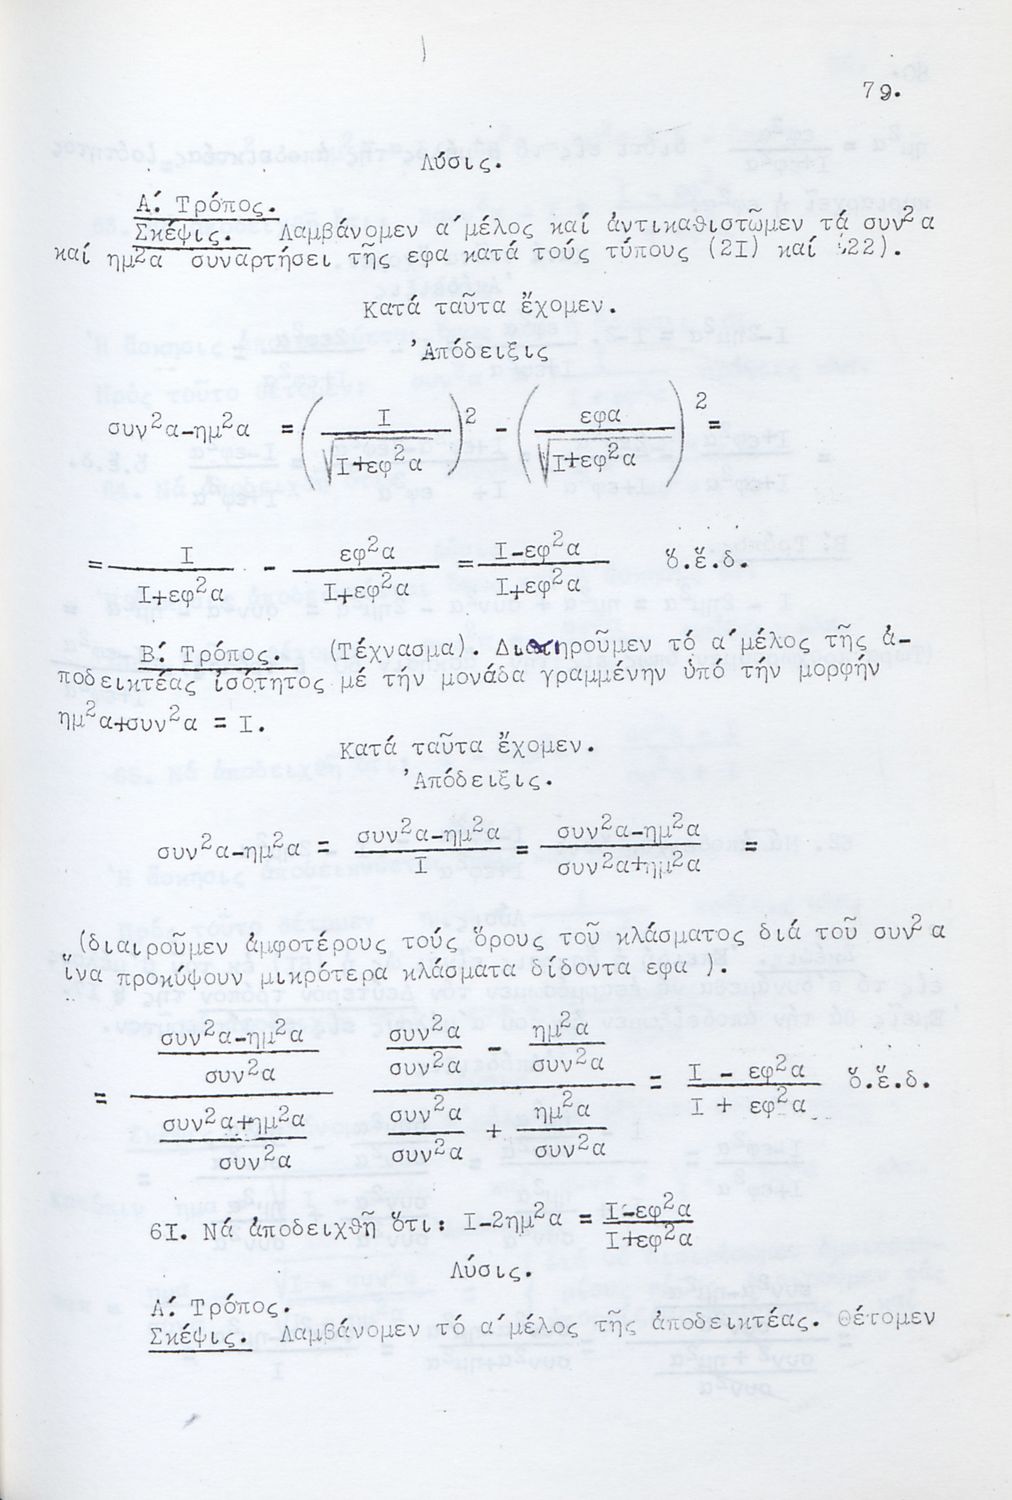 79.
Λύσις.
Α΄. Τρόπος.
Σκέψις. Λαμβάνομεν α΄μέλος καί ἀντικαθιστῶμεν τά συν²α
καί ημ²α συναρτήσει τῆς εφα κατά τούς τύπους (2Ι) καί (22).
Κατά ταῦτα ἔχομεν.
Ἀπόδειξις
συν²α-ημ²α = (Ι/√Ι+εφ²α)² - (εφα/√Ι+εφ²α)² =
= Ι/Ι+εφ²α - εφ²α/Ι+εφ²α = Ι-εφ²α/Ι+εφ²α ὅ.ἔ.δ.
Β΄. Τρόπος. (Τέχνασμα). Διαιροῦμεν τό α΄μέλος τῆς ἀ-
ποδεικτέας ἰσότητος μέ τήν μονάδα γραμμένην ὑπό τήν μορφήν
ημ²α+συν²α = Ι.
Κατά ταῦτα ἔχομεν.
Ἀπόδειξις.
συν²α-ημ²α = συν²α-ημ²α/Ι = συν²α-ημ²α/συν²α+ημ²α =
(διαιροῦμεν ἀμφοτέρους τούς ὅρους τοῦ κλάσματος διά τοῦ συν²α
ἵνα προκύψουν μικρότερα κλάσματα δίδοντα εφα ).
= (συν²α-ημ²α/συν²α)/(συν²α+ημ²α/συν²α) (συν²α/συν²α - ημ²α/συν²α)/(συν²α/συν²α + ημ²α/συν²α) = Ι - εφ²α/Ι + εφ²α ὅ.ἔ.δ.
6Ι. Νά ἀποδειχθῇ ὅτι: Ι-2ημ²α = Ι-εφ²α/Ι+εφ²α
Λύσις.
Α΄. Τρόπος.
Σκέψις. Λαμβάνομεν τό α΄μέλος τῆς ἀποδεικτέας. Θέτομεν